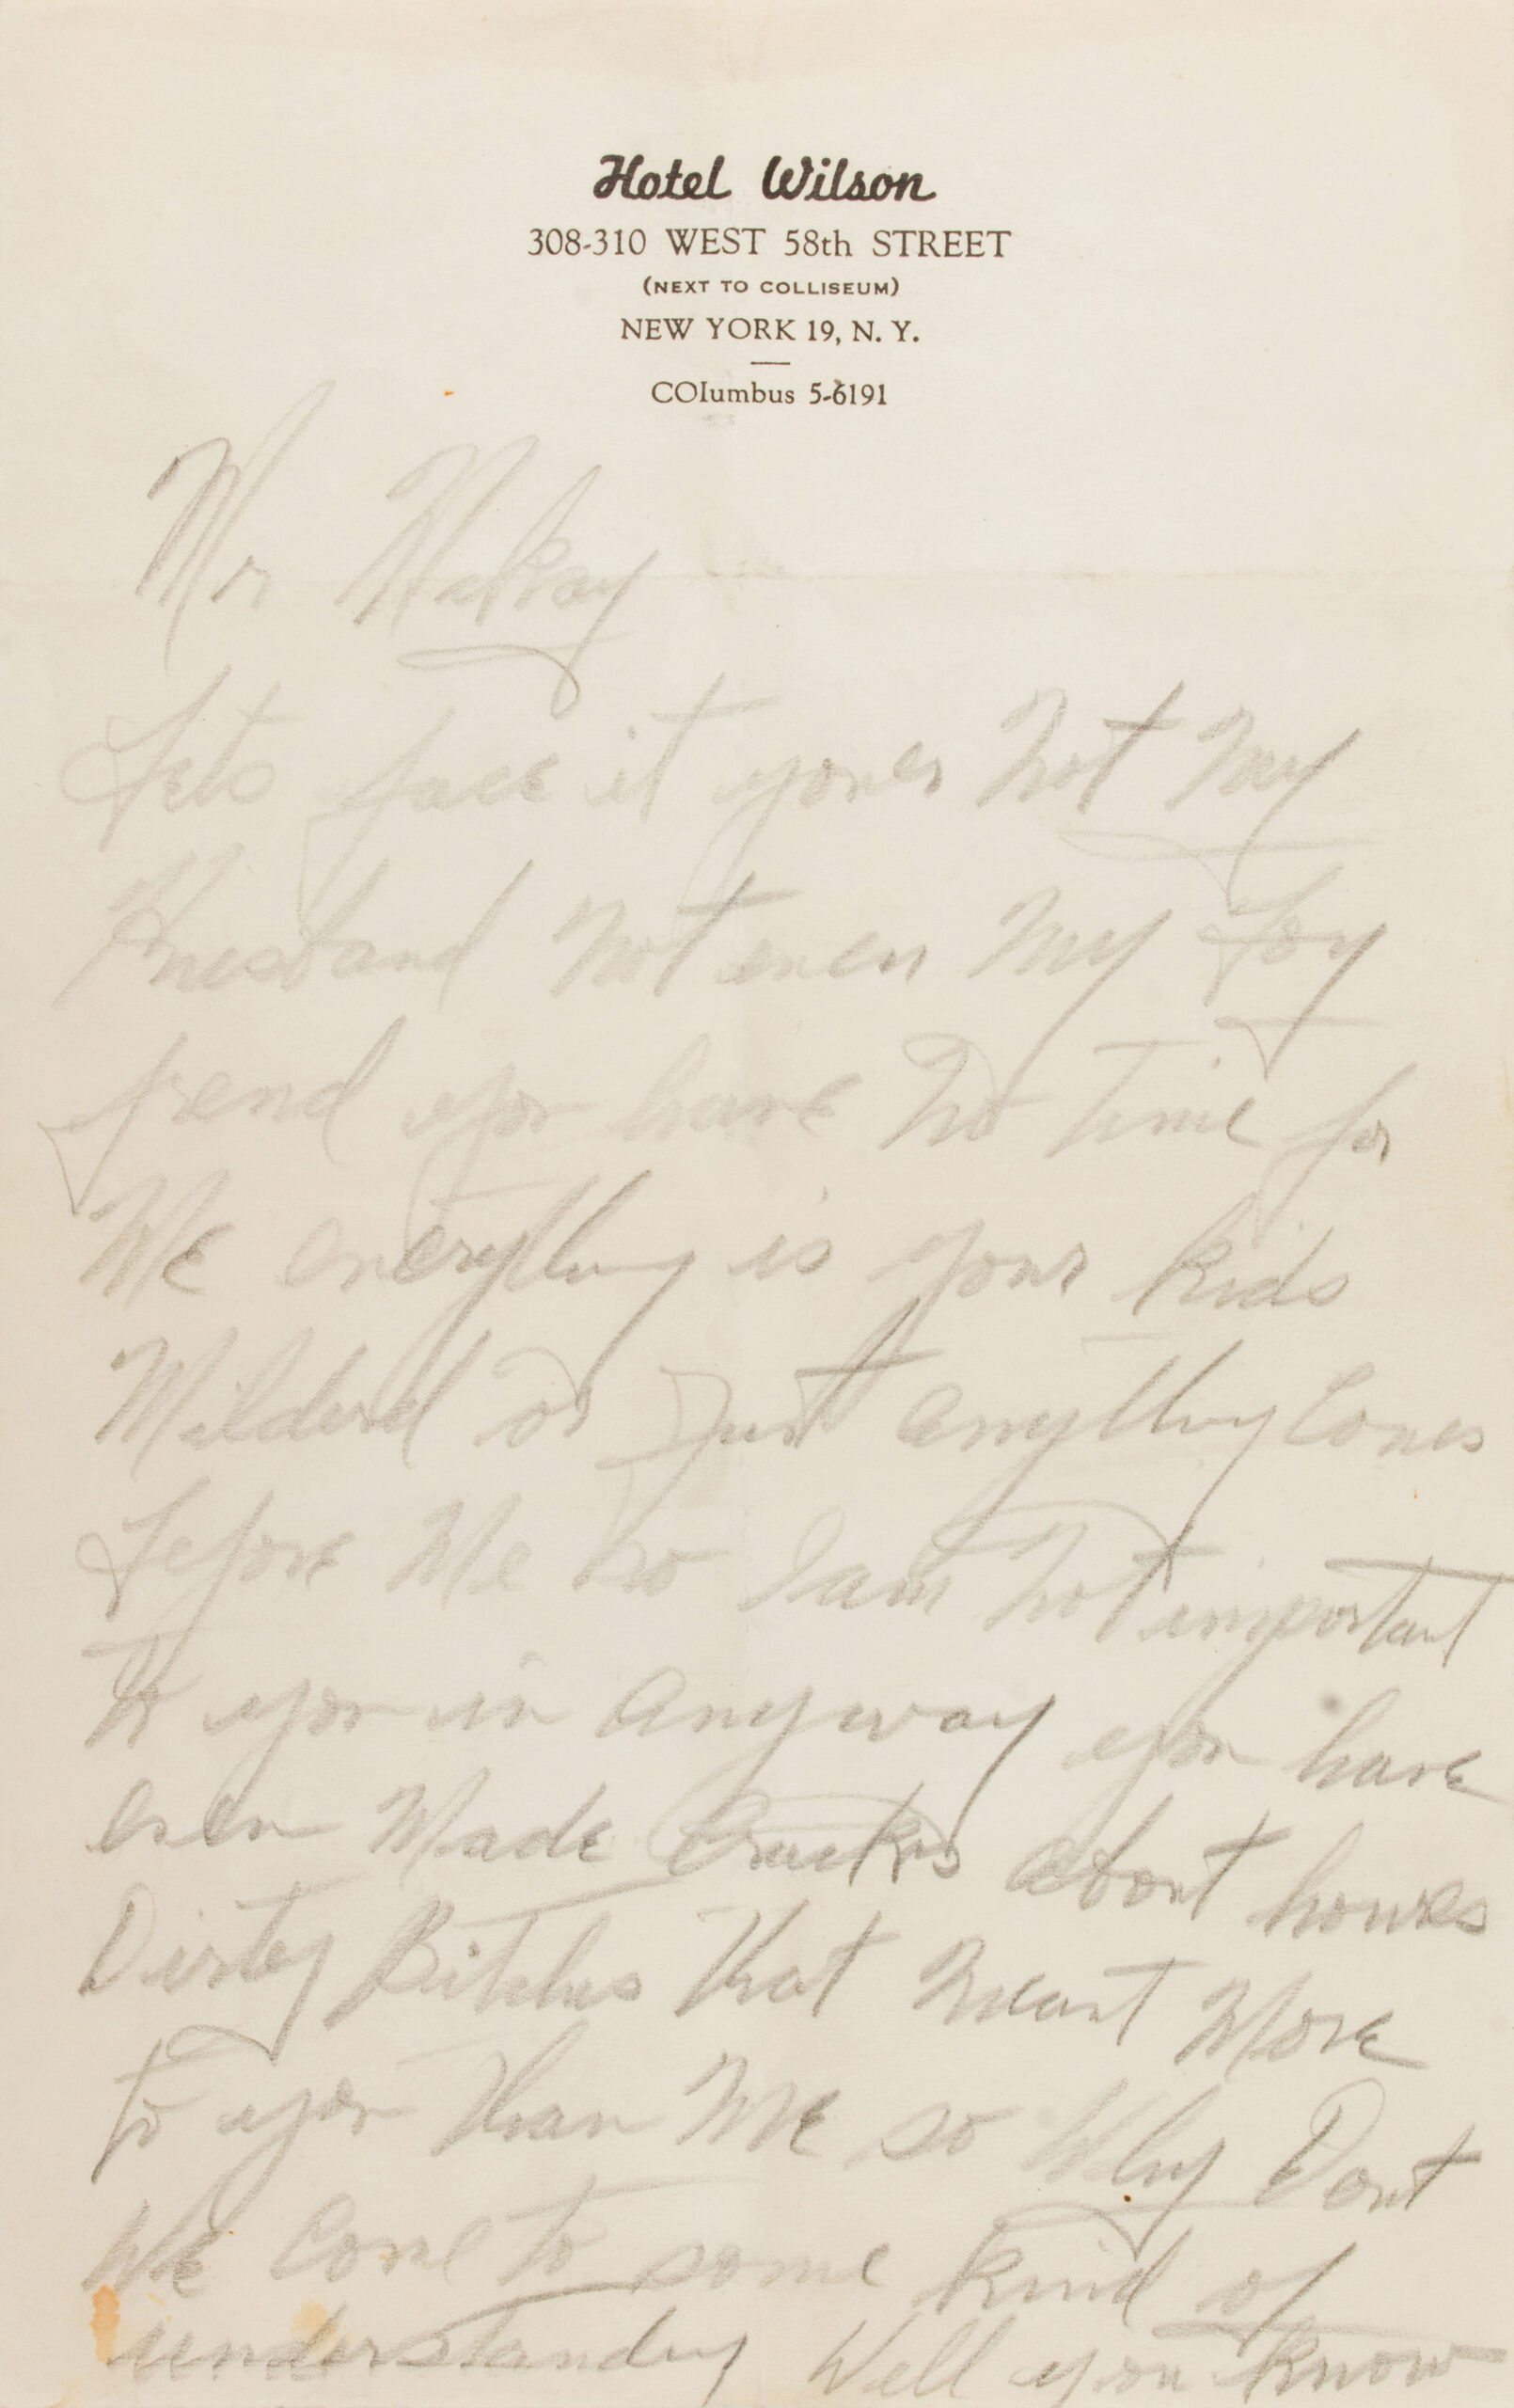 Hotel Wilson
308-310 WEST 58th STREET
(NEXT TO COLLISEUM)
NEW YORK 19, N. Y.
COlumbus 5-6191
Mr McKay
Lets face it your not my
Husband not even my boy
frend you have no time for
Me everything is your kids
Milderd or Just anything Comes
before Me no I am not important
to you in anyway you have
even Made Cracks about
Dirty Bitches that meant More
to you than Me so why Dont
We Come to some kind of
understanding Well you know